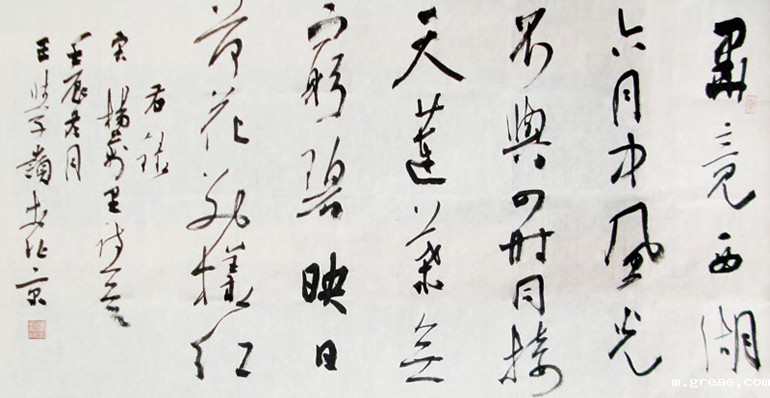 畢竟西湖
六月中風光
不與四時同接
天蓮葉無
窮碧映日
荷花别樣紅
右録
宋楊萬里詩一首
壬辰冬月
王
m.greae.com